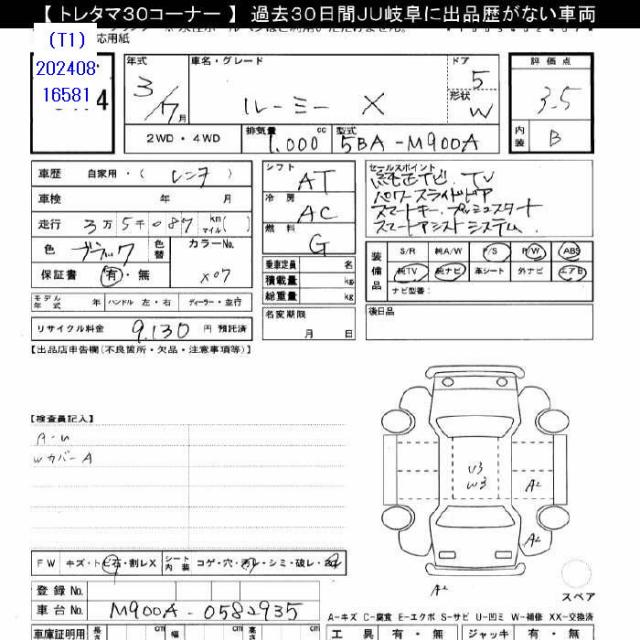 【 トレタマ30コーナー 】 過去30日間JU岐阜に出品歴がない車両
応用紙
(T1)
202408
16581
4
年式
3/7月
車名・グレード
ルーミー X
ドア
5
形状
W
評価点
3.5
内装
B
2WD・4WD
排気量
1.000 cc
型式
5BA-M900A
車歴 自家用・( レンタ )
車検 年 月
走行 3万5千087 km マイル ( )
色 ブラック 色替
カラーNo.
X07
保証書 有・無
モデル年式 年 ハンドル 左・右 ディーラー・並行
リサイクル料金 9,130 円 預託済
シフト AT
冷房 AC
燃料 G
乗車定員 名
積載量 kg
総重量 kg
名変期限
月 日
セールスポイント
純正ナビ. TV
パワースライドドア
スマートキー. プッシュスタート
スマートアシストシステム.
装備品
S/R 純A/W P/S P/W ABS
純TV 純ナビ 革シート 外ナビ エアB
ナビ型番:
後日品
【出品店申告欄(不良箇所・欠品・注意事項等)】
【検査員記入】
A-U
Wカバー A
U3
W3
A2
A2
A2
スペア
FW キズ・トビ石・割レX
シート内装 コゲ・穴・汚レ・シミ・破レ・
登録No.
車台No. M900A-0582935
A-キズ C-腐食 E-エクボ S-サビ U-凹ミ W-補修 XX-交換済
車庫証明用 長さ cm 幅 cm 高さ cm
工具 有・無 ジャッキ 有・無